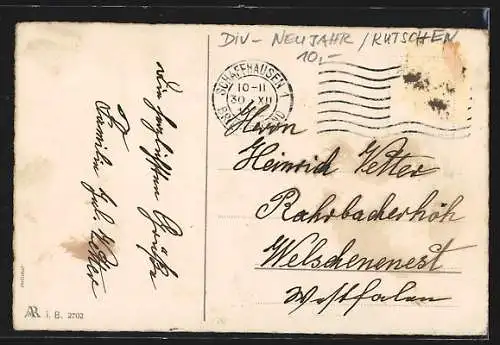 DIV - NEUJAHR / KUTSCHEN
10,-
SCHAFFHAUSEN 1
10-11
30. XII
Herrn
Heinrich Vetter
Rahrbacherhöh
Welschenenest
Westfalen
Die herzlichsten Grüße
Familie Jul. Vetter
i. B. 2702